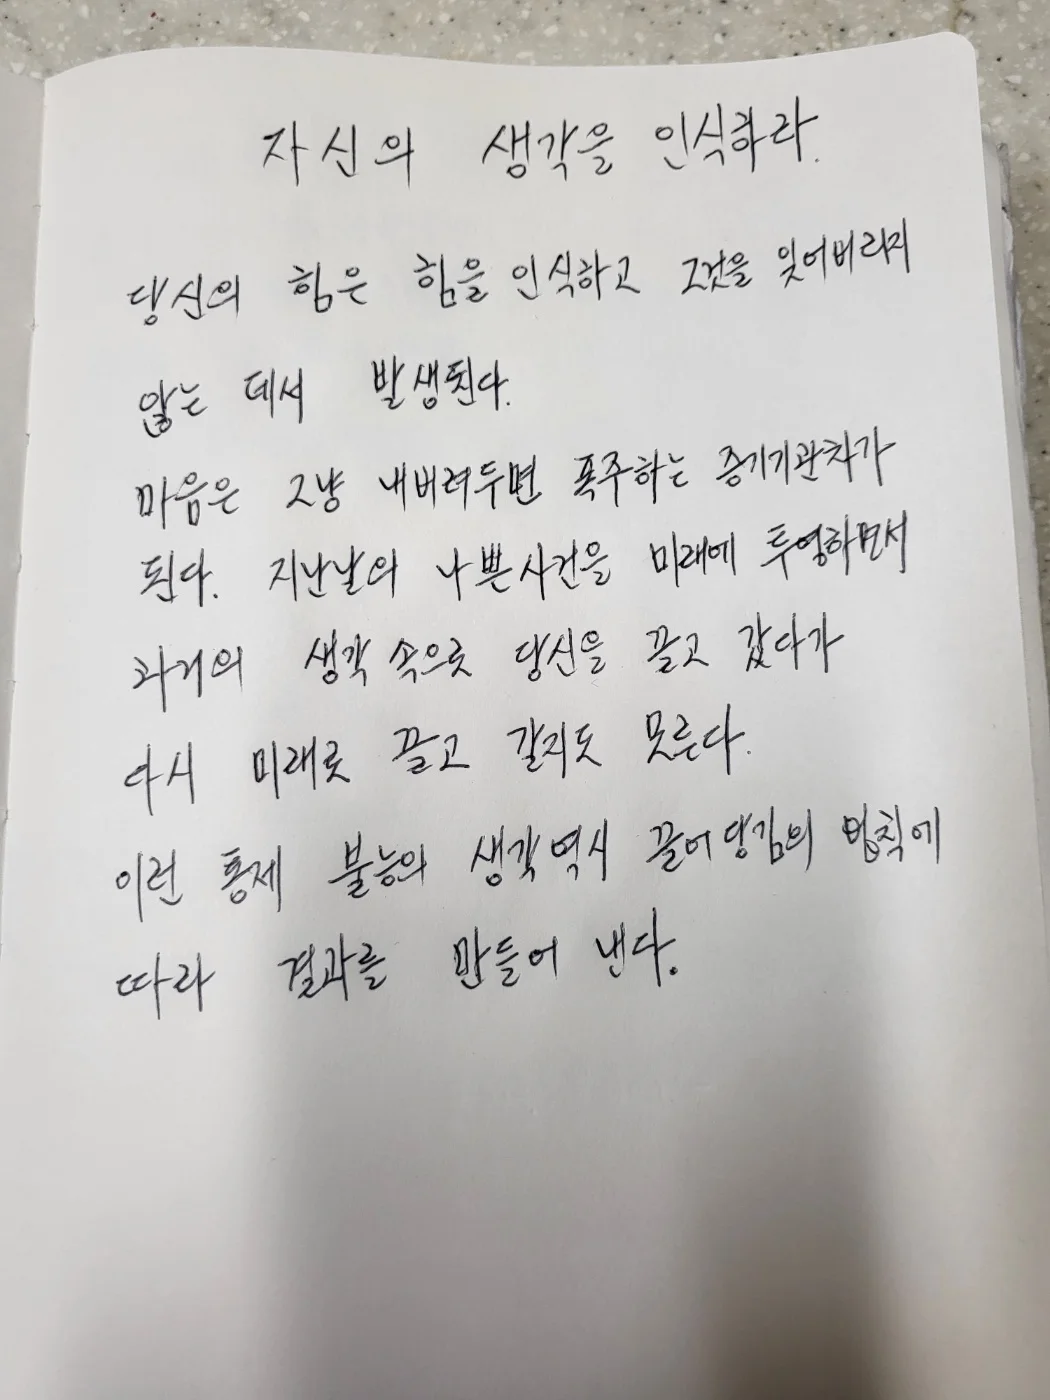 자신의 생각을 인식하라.
당신의 힘은 힘을 인식하고 그것을 잊어버리지
않는 데서 발생된다.
마음은 그냥 내버려두면 폭주하는 증기기관차가
된다. 지난날의 나쁜사건을 미래에 투영하면서
과거의 생각 속으로 당신을 끌고 갔다가
다시 미래로 끌고 갈지도 모른다.
이런 통제 불능의 생각역시 끌어당김의 법칙에
따라 결과를 만들어 낸다.